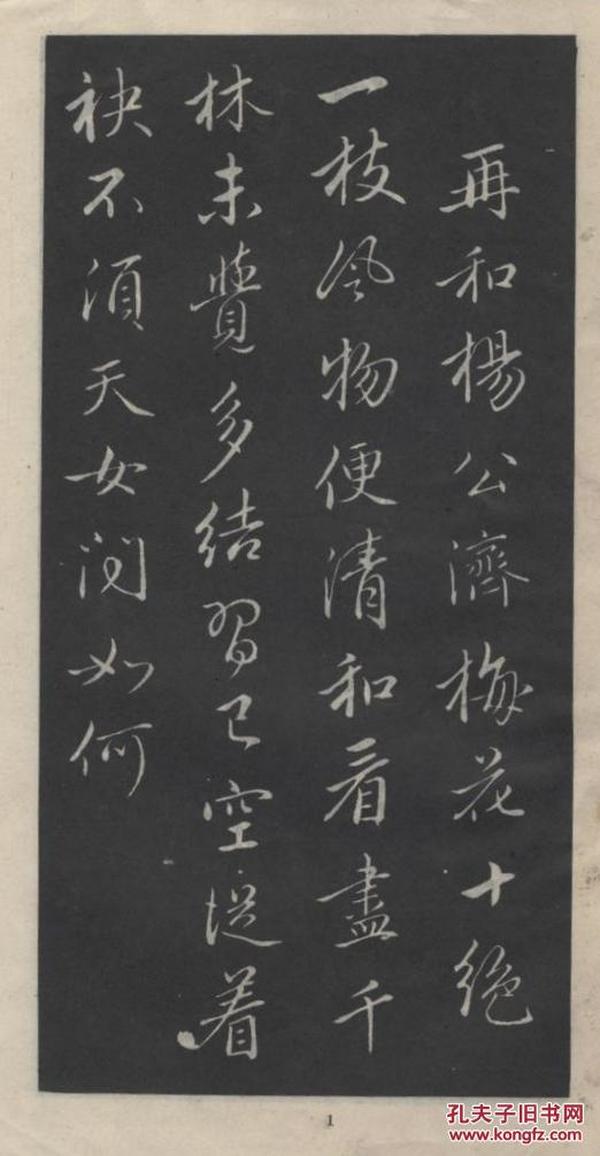 再和楊公濟梅花十絕
一枝風物便清和看盡千
林未覺多結習已空從着
袂不須天女問如何
1
孔夫子旧书网
www.kongfz.com